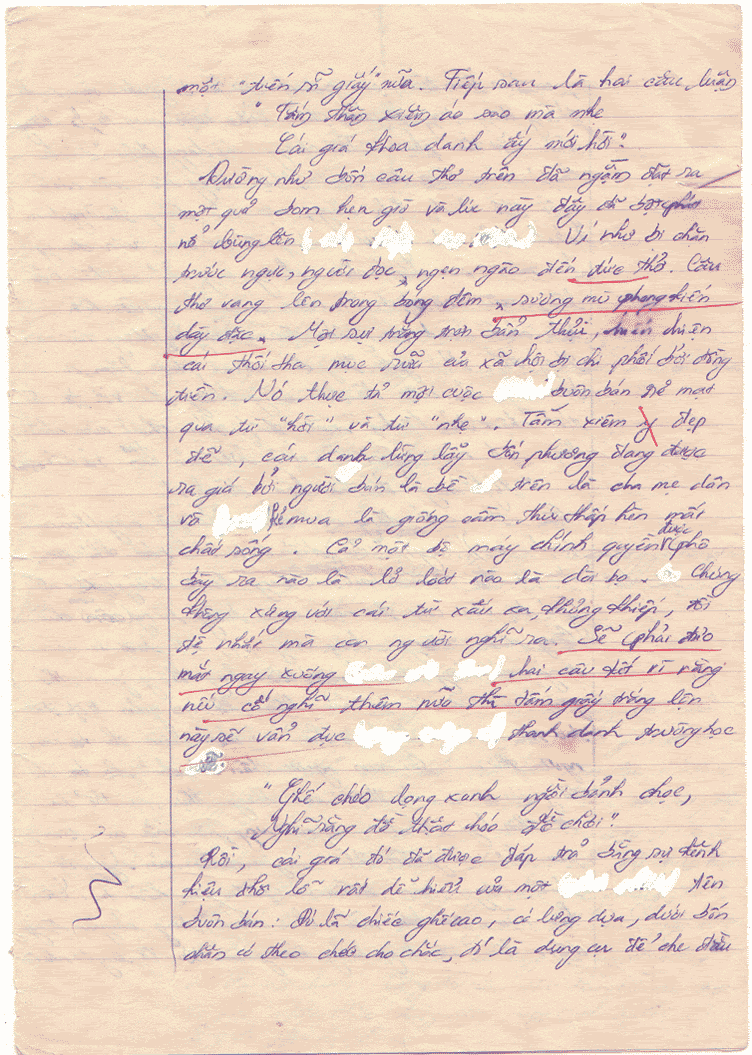 một "tiến sĩ giấy" nữa. Tiếp sau là hai câu luận
"Tấm thân xiêm áo sao mà nhẹ
Cái giá khoa danh ấy mới hời".
Dường như bốn câu thơ trên đã ngầm đặt ra
một quả bom hẹn giờ và lúc này đây đã bột phát
nổ bùng lên Ví như bị chặn
trước ngực, người đọc ngẹn ngào đến tức thở. Câu
thơ vang lên trong bóng đêm sương mù phong kiến
dày đặc. Mọi sự trắng trợn bẩn thỉu, hiển hiện
cái thối tha mục rữa của xã hội bị chi phối bởi đồng
tiền. Nó thực tả một cuộc buôn bán rẻ mạt
qua từ "hời" và từ "nhẹ". Tấm xiêm y đẹp
đẽ, cái danh lừng lẫy bốn phương đang được
ra giá bởi người bán là bề trên là cha mẹ dân
và kẻ mua là giống cầm thú thấp hèn mất
chất sống. Cả một bộ máy chính quyền được phô
bày ra nào là lở loét nào là dòi bọ. Chúng
không xứng với cái từ xấu xa, khủng khiếp, tồi
tệ nhất mà con người nghĩ ra. Sẽ phải đảo
mắt ngay xuống hai câu kết vì rằng
nếu cố nghĩ thêm nữa thì tấm giấy trắng lện
này sẽ vẩn đục thanh danh trường học
"Ghế chéo lọng xanh ngồi bảnh chọe,
Nghĩ rằng đồ thật hóa đồ chơi".
Rồi, cái giá đó đã được đáp trả bằng sự
thô lỗ rất dễ hiểu của một tên
buôn bán: Đó là chiếc ghế cao, có lưng dựa, dưới bốn
chân có theo chéo cho chắc, đó là dụng cụ để che đầu